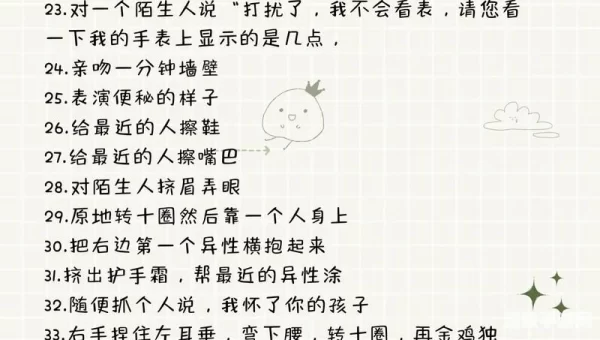 23.对一个陌生人说“打扰了，我不会看表，请您看
一下我的手表上显示的是几点，
24.亲吻一分钟墙壁
25.表演便秘的样子
26.给最近的人擦鞋
27.给最近的人擦嘴巴
28.对陌生人挤眉弄眼
29.原地转十圈然后靠一个人身上
30.把右边第一个异性横抱起来
31.挤出护手霜，帮最近的异性涂
32.随便抓个人说，我怀了你的孩子
33.右手捏住左耳垂，弯下腰，转十圈，再金鸡独